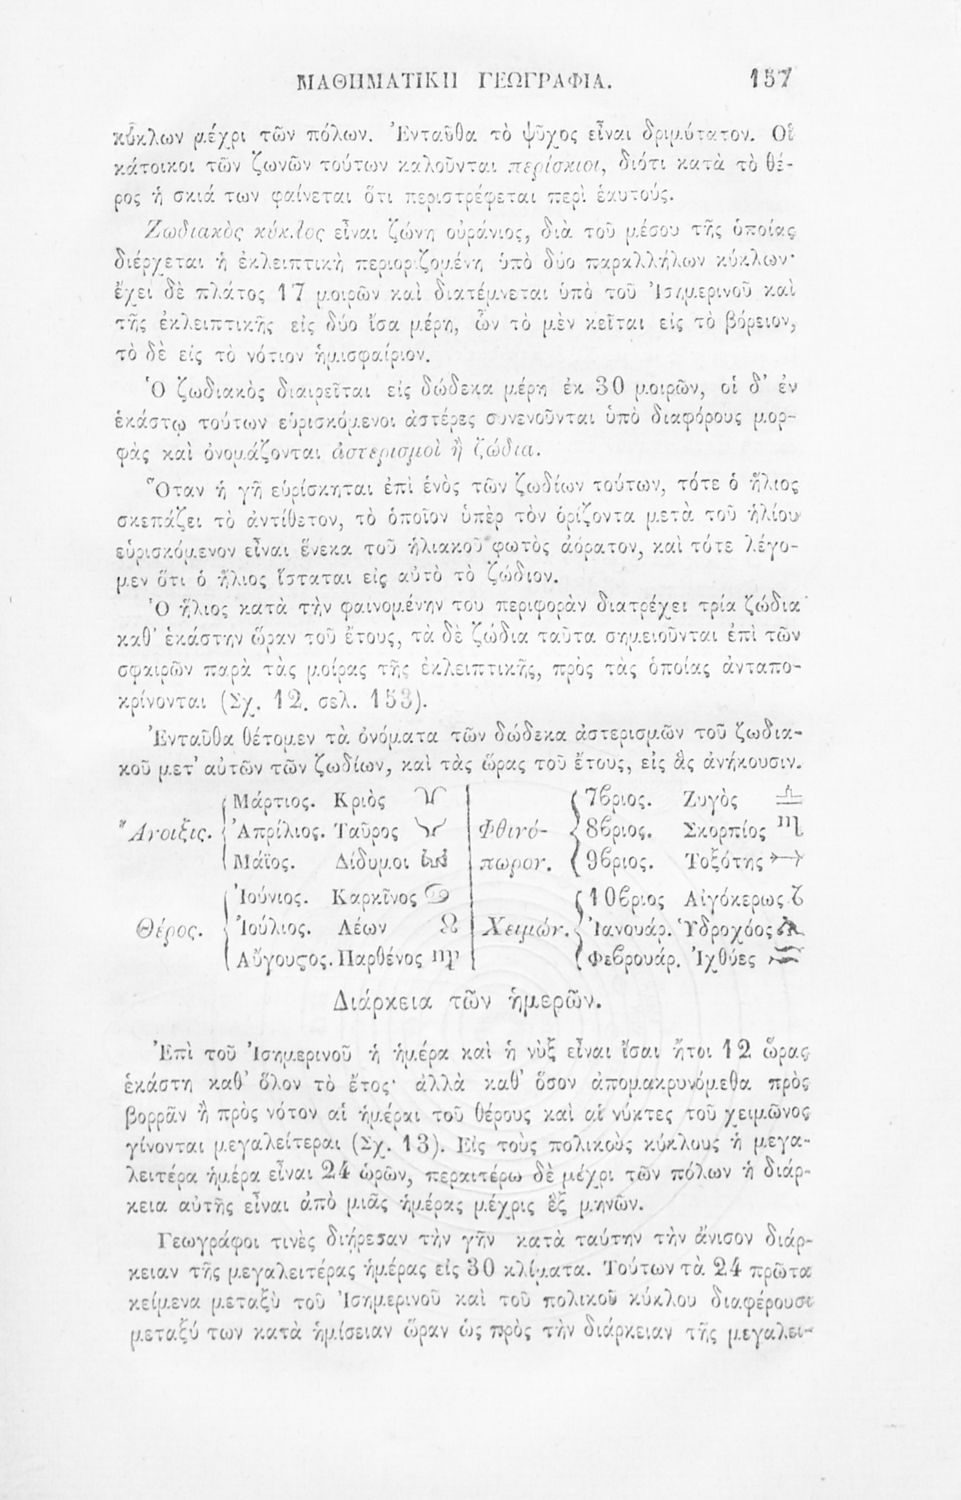 ΜΑΘΗΜΑΤΙΚΗ ΓΕΩΓΡΑΦΙΑ. 157
κύκλων μέχρι τῶν πόλων. Ἐνταῦθα τὸ ψῦχος εἶναι δριμύτατον. Οἱ
κάτοικοι τῶν ζωνῶν τούτων καλοῦνται περίσκιοι, διότι κατὰ τὸ θέ-
ρος ἡ σκιά των φαίνεται ὅτι περιστρέφεται περὶ ἑαυτούς.
Ζωδιακὸς κύκλος εἶναι ζώνη οὐράνιος, διὰ τοῦ μέσου τῆς ὁποίας
διέρχεται ἡ ἐκλειπτικὴ περιοριζομένη ὑπὸ δύο παραλλήλων κύκλων·
ἔχει δὲ πλάτος 17 μοιρῶν καὶ διατέμνεται ὑπὸ τοῦ Ἰσημερινοῦ καὶ
τῆς ἐκλειπτικῆς εἰς δύο ἴσα μέρη, ὧν τὸ μὲν κεῖται εἰς τὸ βόρειον,
τὸ δὲ εἰς τὸ νότιον ἡμισφαίριον.
Ὁ ζωδιακὸς διαιρεῖται εἰς δώδεκα μέρη ἐκ 30 μοιρῶν, οἱ δ' ἐν
ἑκάστῳ τούτων εὑρισκόμενοι ἀστέρες συνενοῦνται ὑπὸ διαφόρους μορ-
φὰς καὶ ὀνομάζονται ἀστερισμοὶ ἢ ζώδια.
Ὅταν ἡ γῆ εὑρίσκηται ἐπὶ ἑνὸς τῶν ζωδίων τούτων, τότε ὁ ἥλιος
σκεπάζει τὸ ἀντίθετον, τὸ ὁποῖον ὑπὲρ τὸν ὁρίζοντα μετὰ τοῦ ἡλίου
εὑρισκόμενον εἶναι ἕνεκα τοῦ ἡλιακοῦ φωτὸς ἀόρατον, καὶ τότε λέγο-
μεν ὅτι ὁ ἥλιος ἵσταται εἰς αὐτὸ τὸ ζώδιον.
Ὁ ἥλιος κατὰ τὴν φαινομένην του περιφορὰν διατρέχει τρία ζώδια
καθ' ἑκάστην ὥραν τοῦ ἔτους, τὰ δὲ ζώδια ταῦτα σημειοῦνται ἐπὶ τῶν
σφαιρῶν παρὰ τὰς μοίρας τῆς ἐκλειπτικῆς, πρὸς τὰς ὁποίας ἀνταπο-
κρίνονται (Σχ. 12. σελ. 153).
Ἐνταῦθα θέτομεν τὰ ὀνόματα τῶν δώδεκα ἀστερισμῶν τοῦ ζωδια-
κοῦ μετ' αὐτῶν τῶν ζωδίων, καὶ τὰς ὥρας τοῦ ἔτους, εἰς ἃς ἀνήκουσιν.
Μάρτιος. Κριὸς ♈ 7βριος. Ζυγὸς ♎
Ἄνοιξις. Ἀπρίλιος. Ταῦρος ♉ Φθινό- 8βριος. Σκορπίος ♏
Μάϊος. Δίδυμοι ♊ πωρον. 9βριος. Τοξότης ♐
Ἰούνιος. Καρκῖνος ♋ 10βριος Αἰγόκερως ♑
Θέρος. Ἰούλιος. Λέων ♌ Χειμών. Ἰανουάρ. Ὑδροχόος ♒
Αὔγουςος. Παρθένος ♍ Φεβρουάρ. Ἰχθύες ♓
Διάρκεια τῶν ἡμερῶν.
Ἐπὶ τοῦ Ἰσημερινοῦ ἡ ἡμέρα καὶ ἡ νὺξ εἶναι ἴσαι ἤτοι 12 ὥρας
ἑκάστη καθ' ὅλον τὸ ἔτος· ἀλλὰ καθ' ὅσον ἀπομακρυνόμεθα πρὸς
βορρᾶν ἢ πρὸς νότον αἱ ἡμέραι τοῦ θέρους καὶ αἱ νύκτες τοῦ χειμῶνος
γίνονται μεγαλείτεραι (Σχ. 13). Εἰς τοὺς πολικοὺς κύκλους ἡ μεγα-
λειτέρα ἡμέρα εἶναι 24 ὡρῶν, περαιτέρω δὲ μέχρι τῶν πόλων ἡ διάρ-
κεια αὐτῆς εἶναι ἀπὸ μιᾶς ἡμέρας μέχρις ἓξ μηνῶν.
Γεωγράφοι τινὲς διῄρεσαν τὴν γῆν κατὰ ταύτην τὴν ἄνισον διάρ-
κειαν τῆς μεγαλειτέρας ἡμέρας εἰς 30 κλίματα. Τούτων τὰ 24 πρῶτα
κείμενα μεταξὺ τοῦ Ἰσημερινοῦ καὶ τοῦ πολικοῦ κύκλου διαφέρουσι
μεταξύ των κατὰ ἡμίσειαν ὥραν ὡς πρὸς τὴν διάρκειαν τῆς μεγαλει-